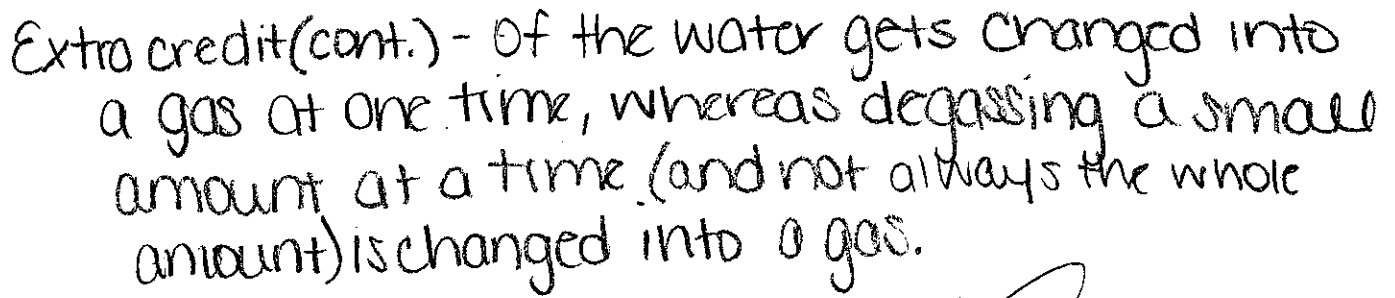 Extra credit(cont.) - of the water gets changed into
a gas at one time, whereas degassing a small
amount at a time (and not always the whole
amount) is changed into a gas.